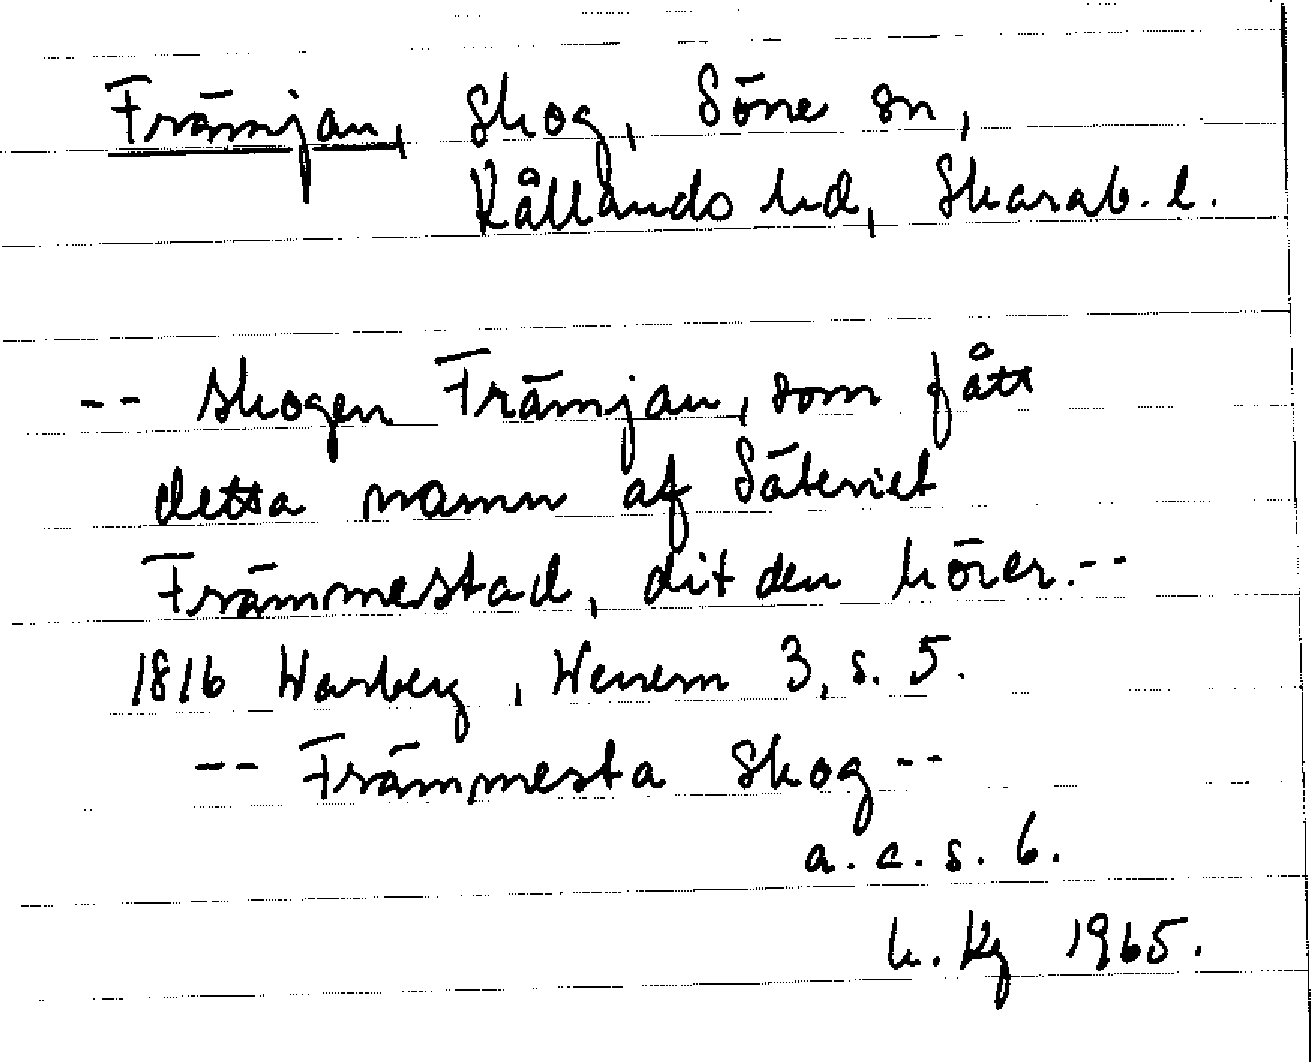 Främjan, Skog, Söne sn,
Kållands hd, Skarab. l.
-- Skogen Främjan, som fått
detta namn af Säteriet
Främmestad, dit den hörer.--
1816 Warberg, Wenern 3, s. 5.
-- Främmesta Skog --
a. a. s. 6.
h. Kg 1965.